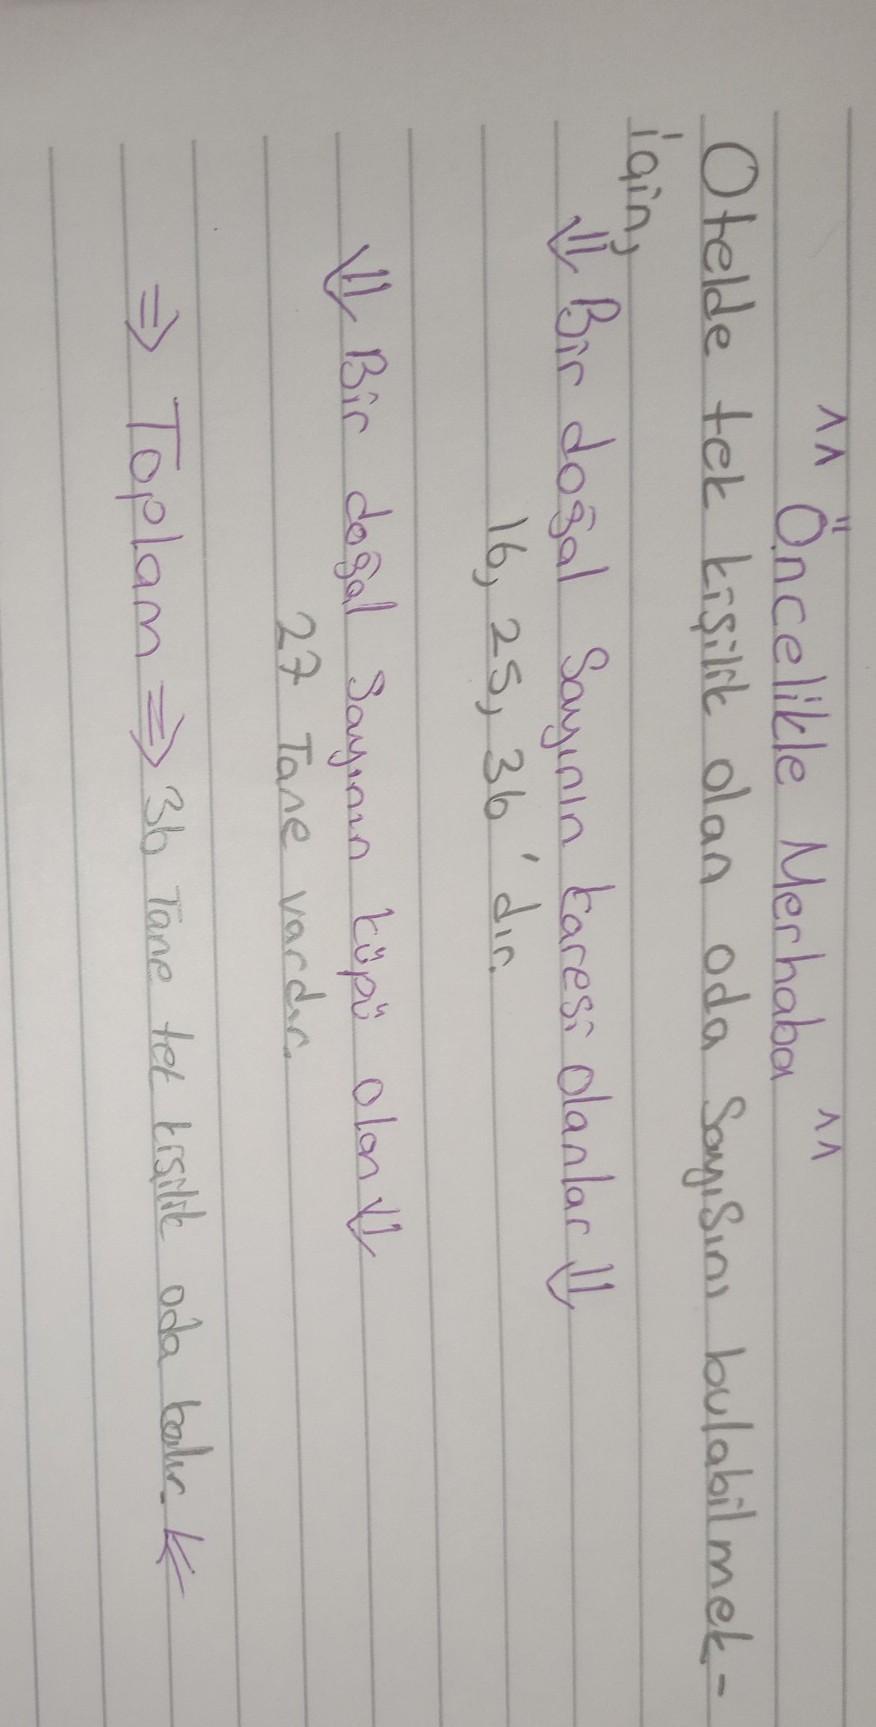 ^^ Öncelikle Merhaba ^^
Otelde tek kişilik olan oda sayısını bulabilmek-
için,
⇓ Bir doğal sayının karesi olanlar ⇓
16, 25, 36 'dır.
⇓ Bir doğal sayının küpü olan ⇓
27 Tane vardır.
⇒ Toplam ⇒ 36 Tane tek kişilik oda kalır. ⇐